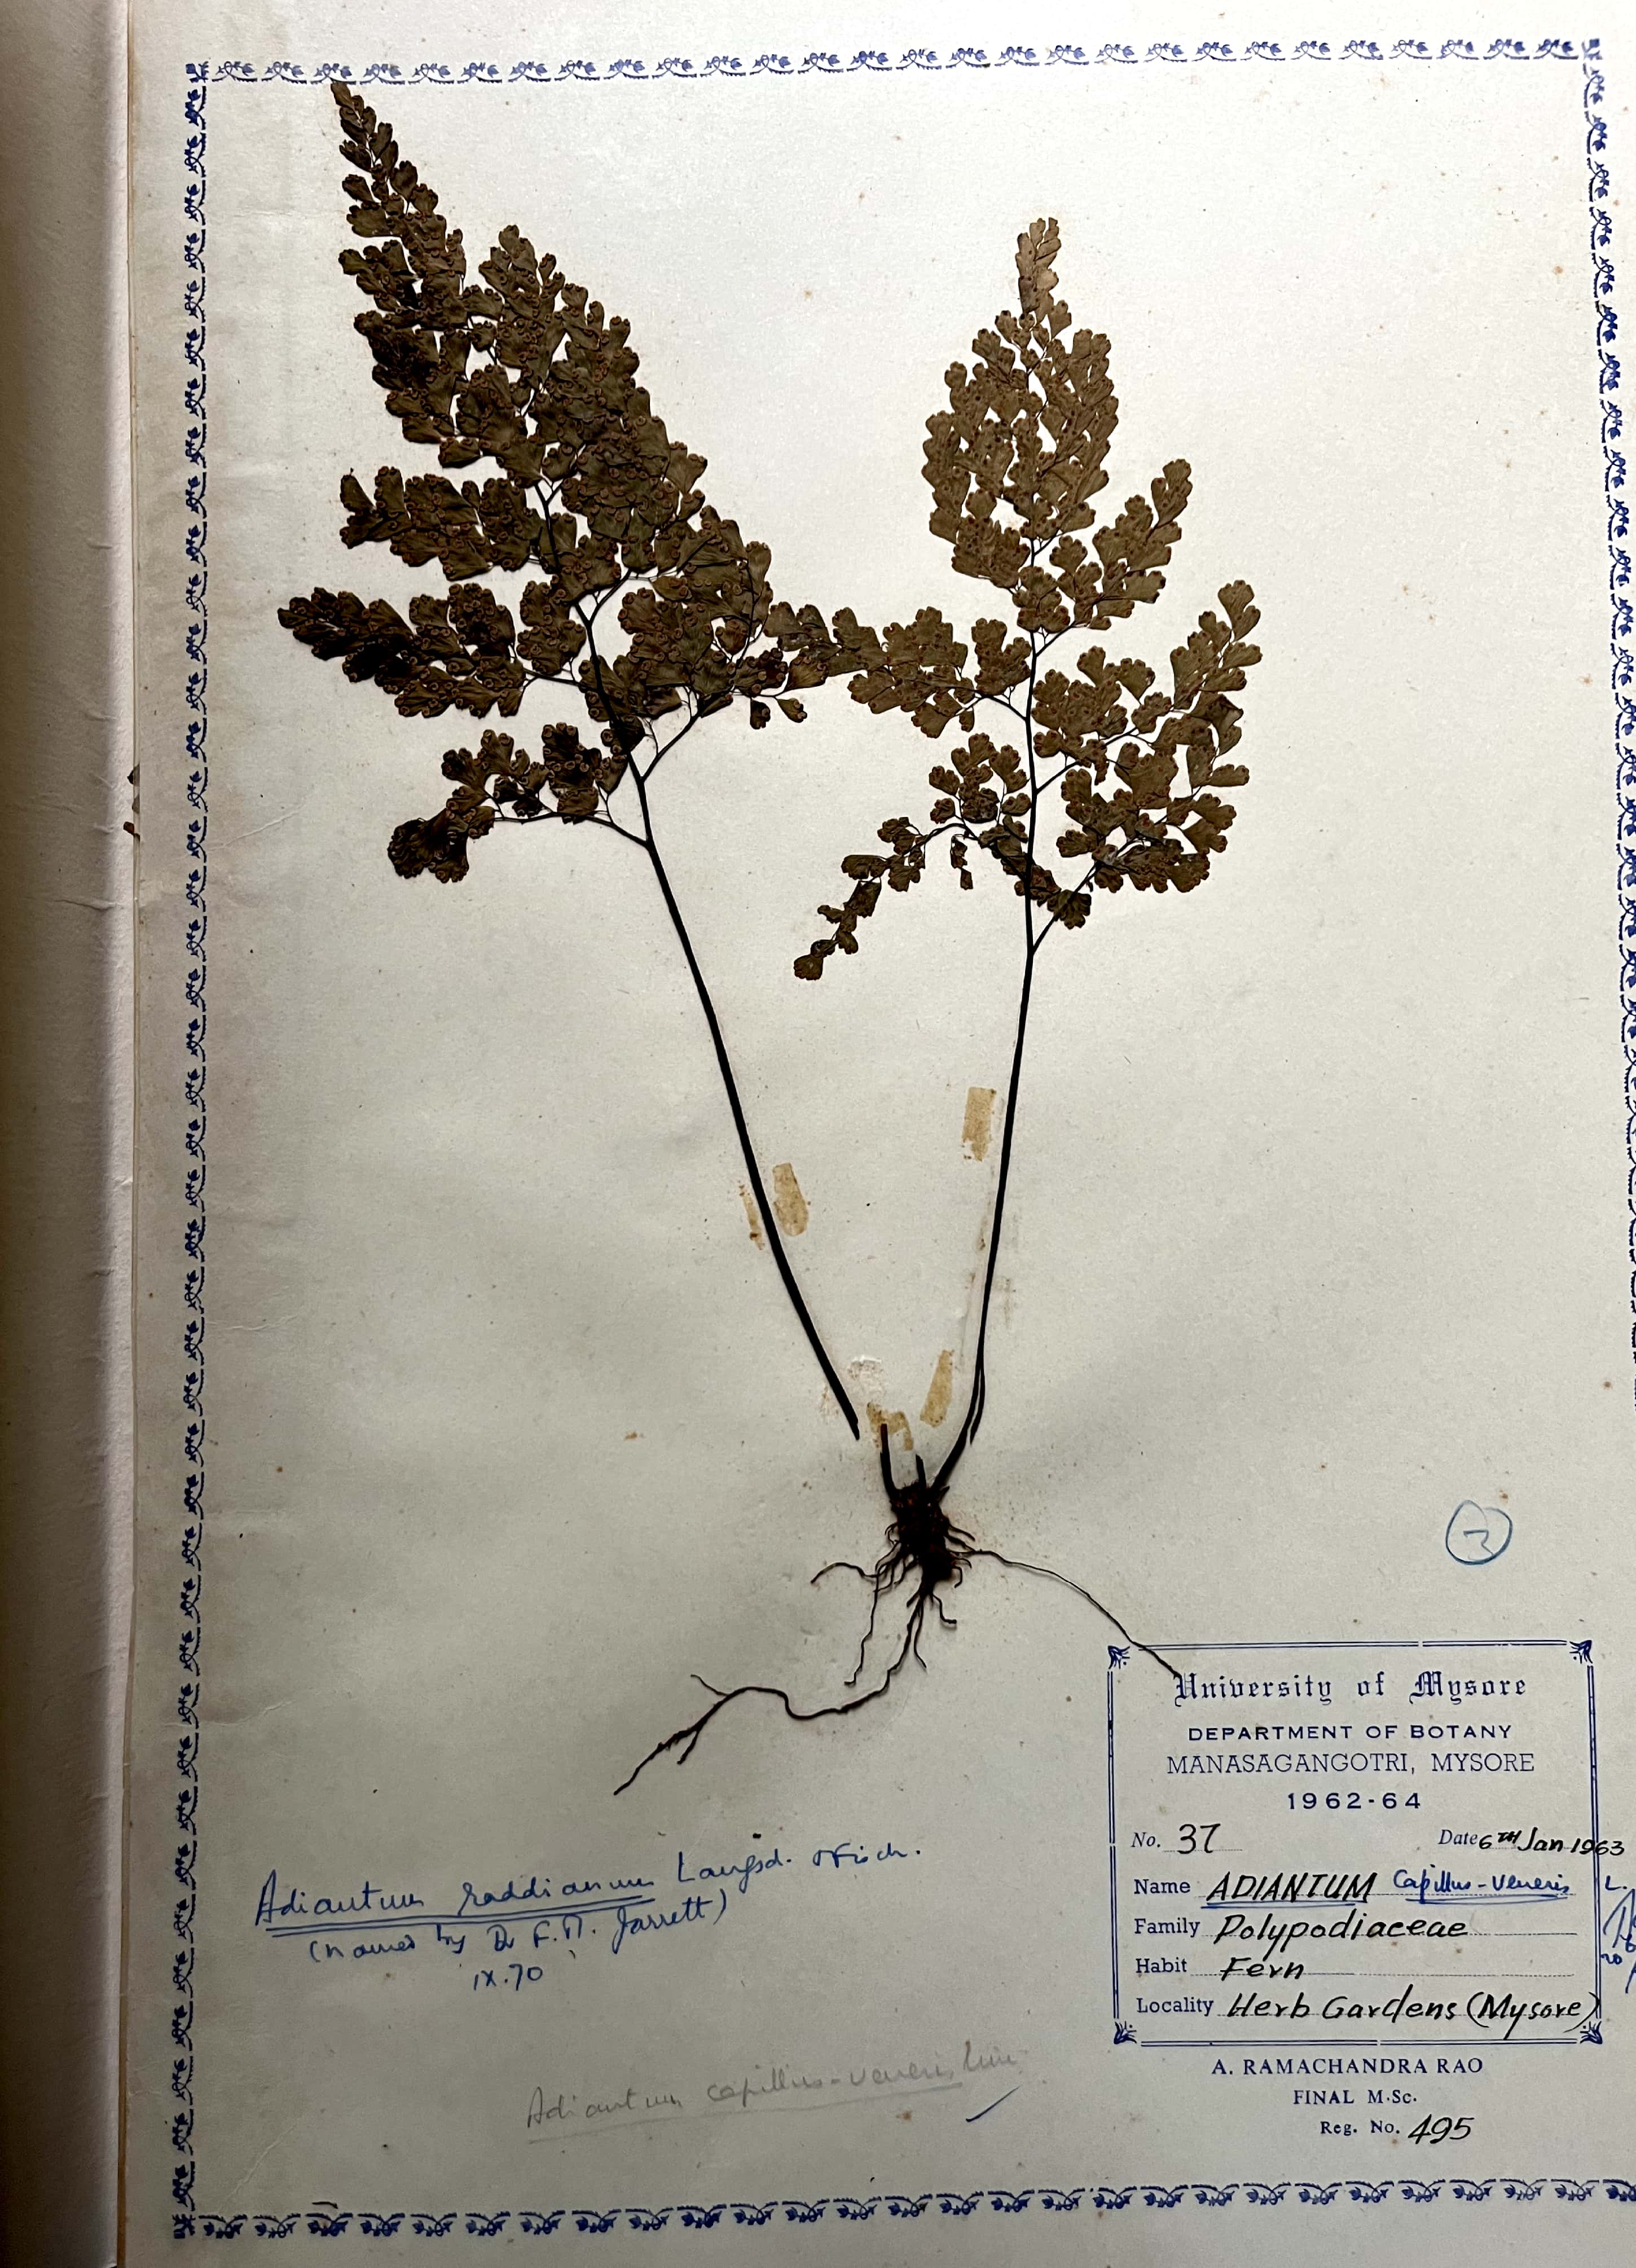 University of Mysore
DEPARTMENT OF BOTANY
MANASAGANGOTRI, MYSORE
1962-64
No. 37 Date 6TH Jan 1963
Name ADIANTUM Capillus-veneris L.
Family Polypodiaceae
Habit Fern
Locality Herb Gardens (Mysore)
A. RAMACHANDRA RAO
FINAL M.Sc.
Reg. No. 495
Adiantum raddianum Langsd. & Fisch.
(named by Dr F.M. Jarrett)
IX.70
Adiantum capillus-veneris Linn